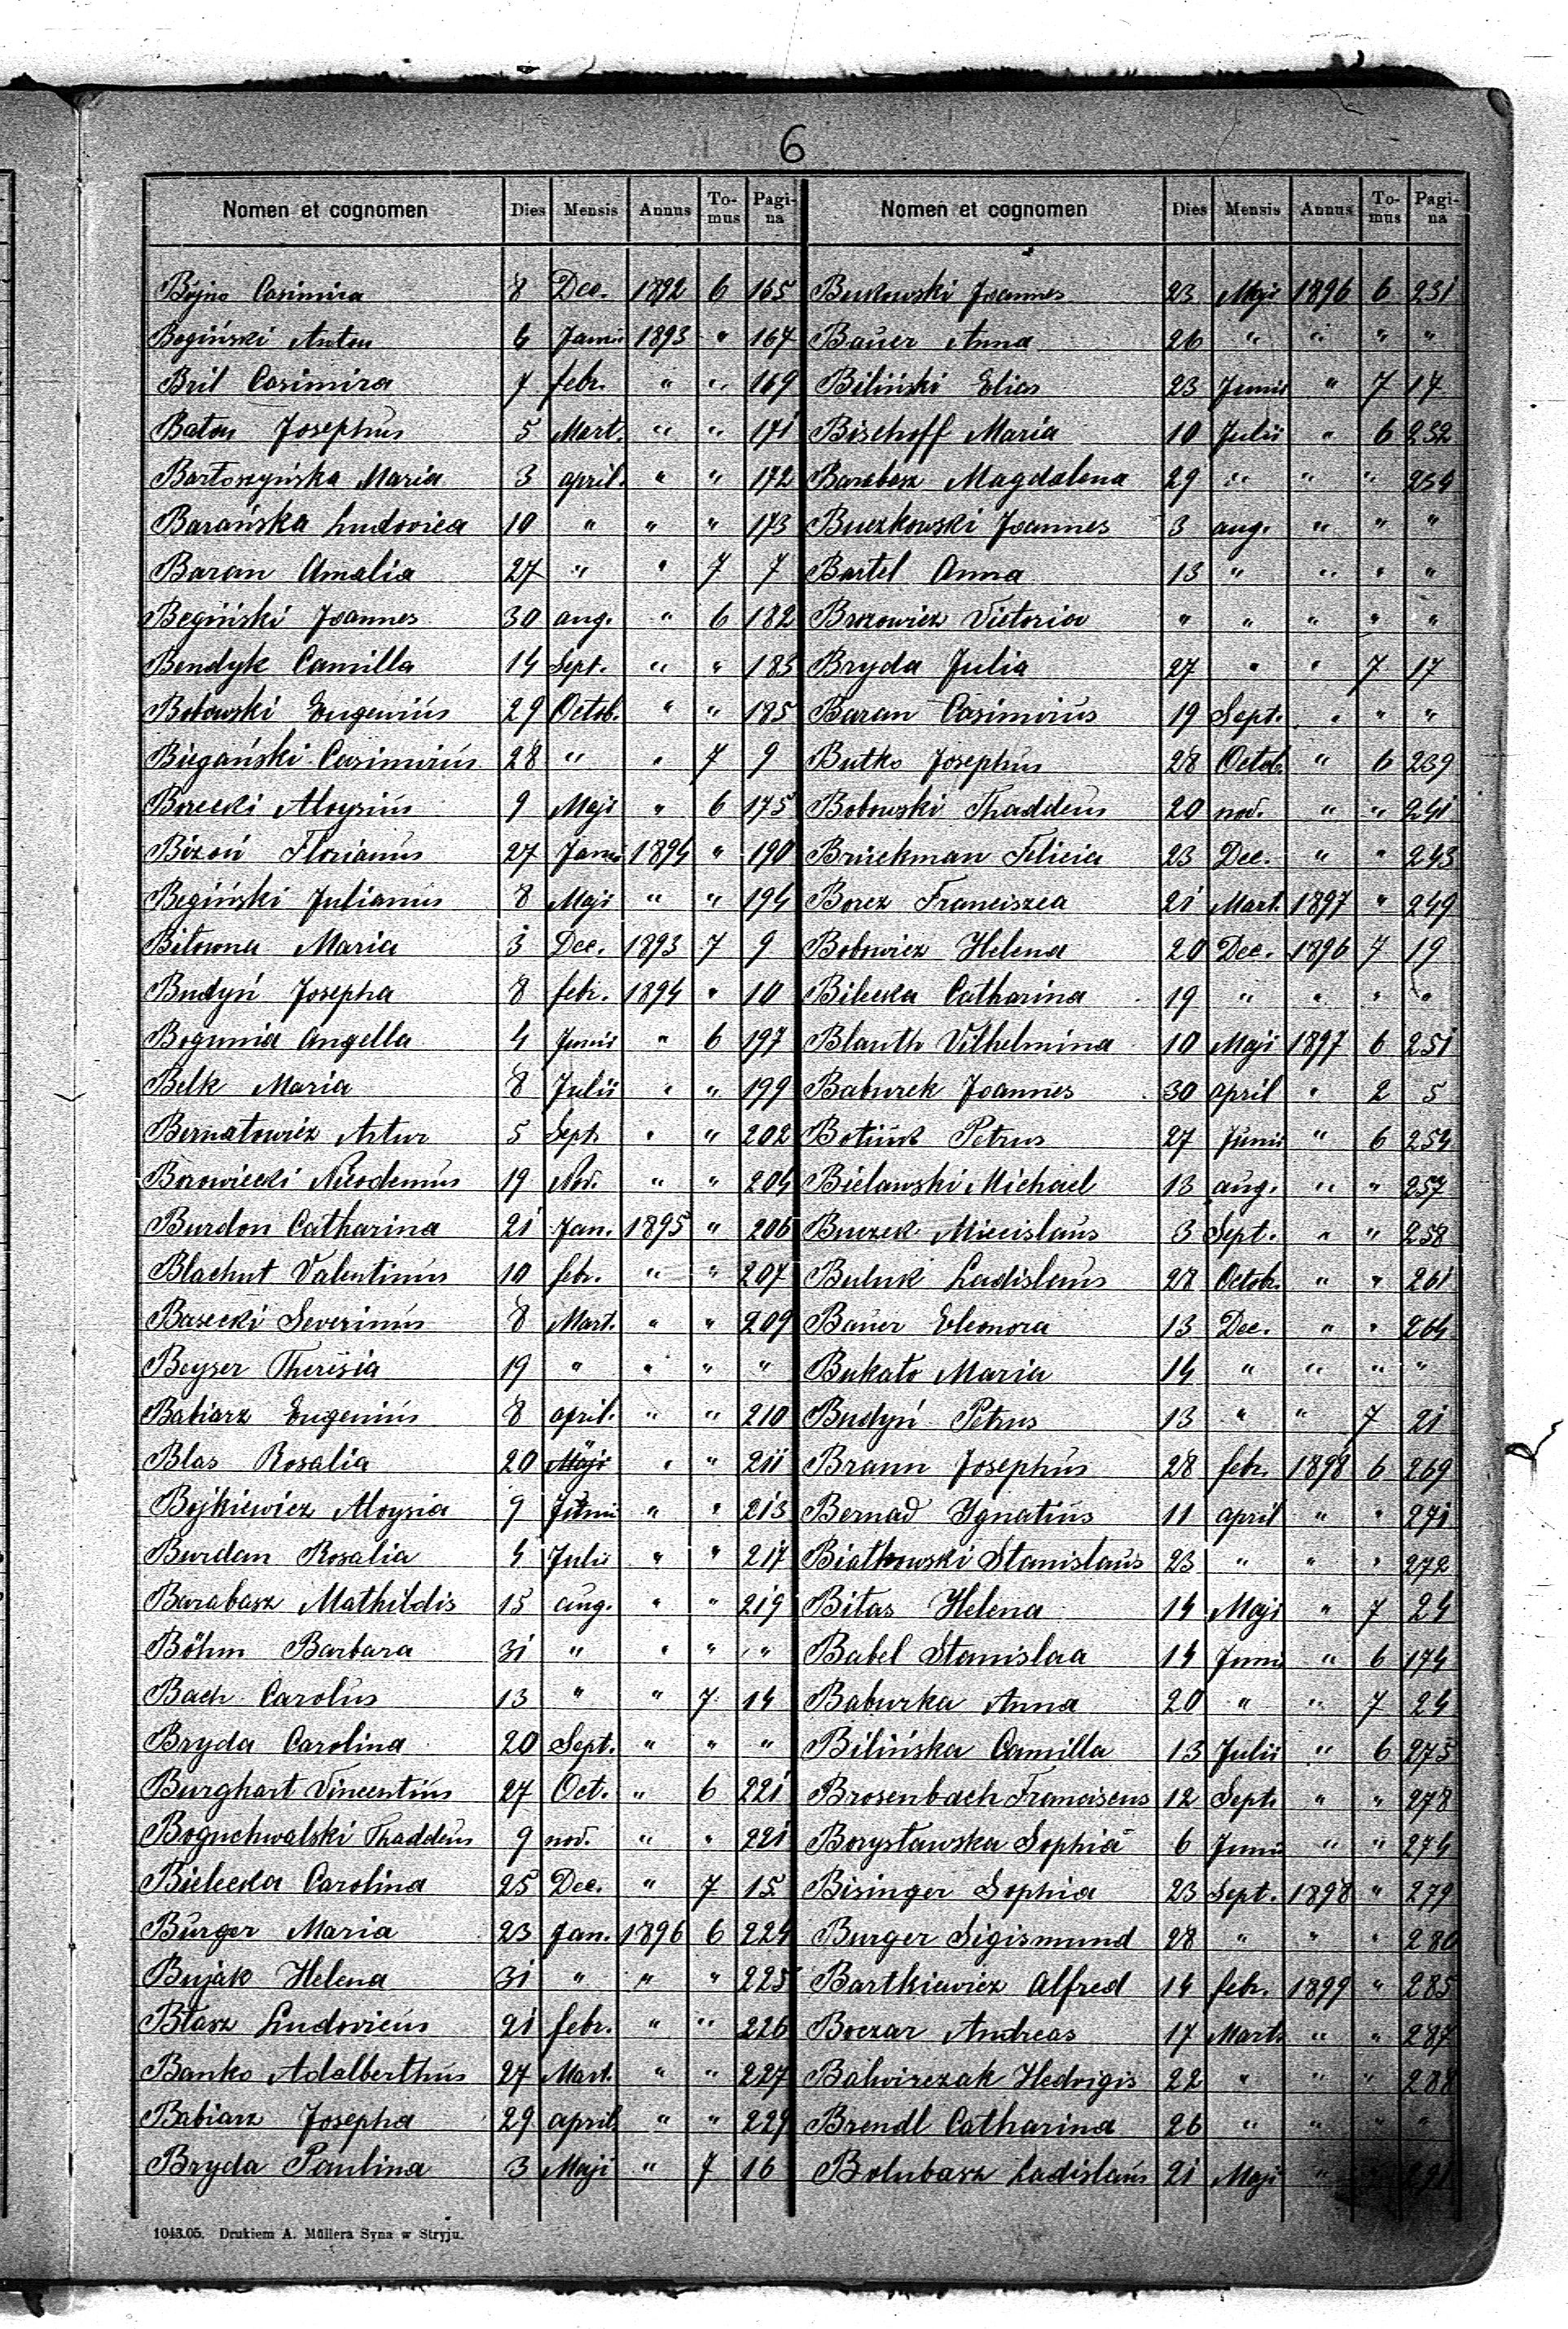 6
Nomen et cognomen Dies Mensis Annus To-mus Pagi-na
Bójno Casimira 8 Dec. 1892 6 165
Begiński Anton 6 Janu 1893 " 167
Bril Casimira 7 febr. " " 169
Baton Josephus 5 Mart. " " 171
Bartoszyńska Maria 3 april. " " 172
Barańska Ludovica 10 " " " 173
Baran Amalia 27 " " 7 7
Begiński Joannes 30 aug. " 6 182
Bendyk Camilla 14 Sept. " " 183
Bobowski Eugenius 29 Octob. " " 185
Biegański Casimirus 28 " " 7 9
Borecki Aloysius 9 Maji " 6 175
Bizoń Florianus 27 Janu 1894 " 190
Begiński Julianus 8 Maji " " 194
Bitowna Maria 3 Dec. 1893 7 9
Budyń Josepha 8 febr. 1894 " 10
Bogunia Angella 4 Junii " 6 197
Belk Maria 8 Julii " " 199
Bernatowicz Artur 5 Sept. " " 202
Borowiecki Nicodemus 19 Nov. " " 204
Burdon Catharina 21 Jan. 1895 " 206
Blachut Valentinus 10 febr. " " 207
Basecki Severinus 8 Mart. " " 209
Beyser Theresia 19 " " " "
Babiarz Eugenius 8 april. " " 210
Blas Rosalia 20 Maji " " 211
Bojkiewicz Aloysia 9 Junii " " 213
Burdan Rosalia 4 Julii " " 217
Barabasz Mathildis 15 aug. " " 219
Böhm Barbara 31 " " " "
Bach Carolus 13 " " 7 14
Bryda Carolina 20 Sept. " " "
Burghart Vincentius 27 Oct. " 6 221
Boguchwalski Thaddeus 9 nov. " " 221
Bielecka Carolina 25 Dec. " 7 15
Burger Maria 23 Jan. 1896 6 224
Bujak Helena 31 " " " 225
Błasz Ludovicus 21 febr. " " 226
Banko Adalberthus 27 Mart. " " 227
Babiarz Josepha 29 april " " 229
Bryda Paulina 3 Maji " 7 16
Nomen et cognomen Dies Mensis Annus To-mus Pagi-na
Bukowski Joannes 23 Maji 1896 6 231
Bauer Anna 26 " " " "
Biliński Elias 23 Junii " 7 17
Bischoff Maria 10 Julii " 6 232
Barabasz Magdalena 29 " " " 234
Buczkowski Joannes 3 aug. " " "
Bartel Anna 13 " " " "
Brzowicz Victoria " " " " "
Bryda Julia 27 " " 7 17
Baran Casimirus 19 Sept. " " "
Butko Josephus 28 Octob. " 6 239
Bobowski Thaddeus 20 nov. " " 241
Brückman Felicia 23 Dec. " " 243
Borcz Franciszca 21 Mart. 1897 " 249
Bobowicz Helena 20 Dec. 1896 7 19
Bilecka Catharina 19 " " " "
Blauth Vilhelmina 10 Maji 1897 6 251
Baburek Joannes 30 april " 2 5
Petrus 27 Junii " 6 254
Bielawski Michael 13 aug. " " 257
Buczek Miecislaus 3 Sept. " " 258
Buluk Ladislaus 28 Octob. " " 261
Bauer Eleonora 13 Dec. " " 264
Bukato Maria 14 " " " "
Budyń Petrus 13 " " 7 21
Braun Josephus 28 febr. 1898 6 269
Bernad Ygnatius 11 april " " 271
Białkowski Stanislaus 23 " " " 272
Bitas Helena 14 Maji " 7 24
Babel Stanislaa 14 Junii " 6 174
Baburka Anna 20 " " 7 24
Bilińska Camilla 13 Julii " 6 275
Brosenbach Franciscus 12 Sept. " " 278
Borysławska Sophia 6 Junii " " 274
Bisinger Sophia 23 Sept. 1898 " 279
Burger Sigismund 28 " " " 280
Bartkiewicz Alfred 14 febr. 1899 " 285
Boczar Andreas 17 Mart. " " 287
Balwirczak Hedvigis 22 " " " 288
Brendl Catharina 26 " " " "
Bolubasz Ladislaus 21 Maji " 291
1043.05. Drukiem A. Müllera Syna w Stryju.